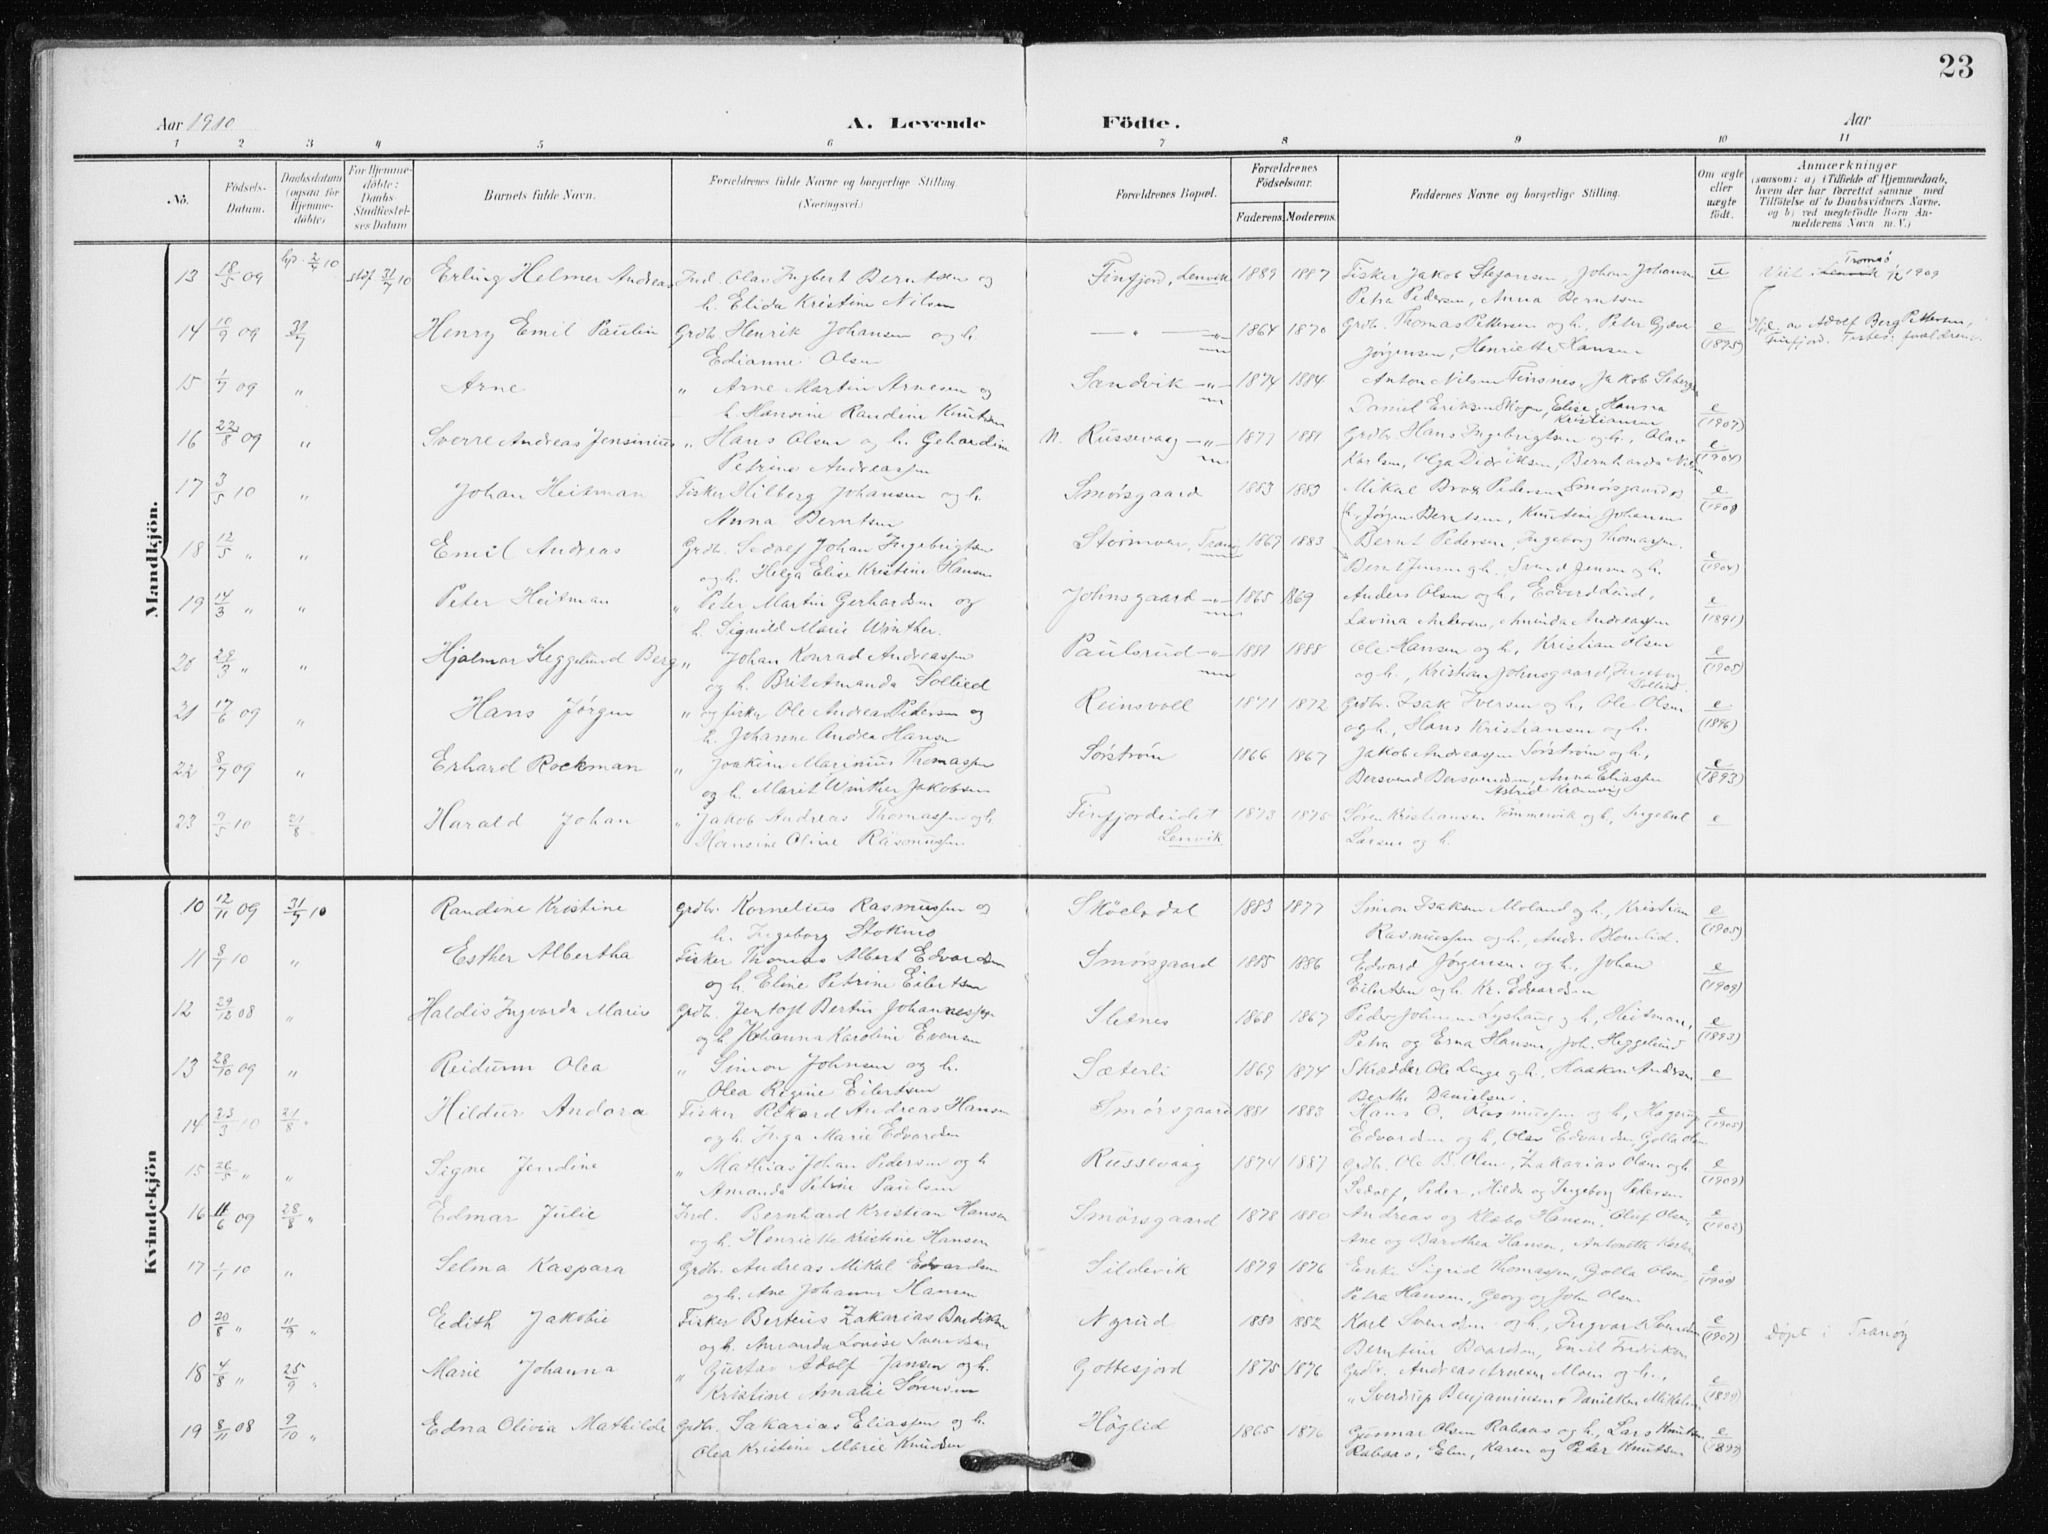 23
Aar 1910 A. Levende Födte. Aar
1 2 3 4 5 6 7 8 9 10 11
No. Födsels-Datum. Daabsdatum (ogsaa for Hjemmedöbte) For Hjemmedöbte: Daabs-Stadfæstelses Datum Barnets fulde Navn. Forældrenes fulde Navne og borgerlige Stilling (Næringsvei.) Forældrenes Bopæl. Forældrenes Födselsaar. Faderens. Moderens. Faddernes Navne og borgerlige Stilling. Om ægte eller uægte födt. Anmærkninger (saasom: a) i Tilfælde af Hjemmedaab, hvem der har forrettet samme, med Tilföielse af to Daabsvidners Navne, og b) ved uegtefödte Börn Anmelderens Navn m. V.)
Mandkjön.
13 18/5 09 hjd. 2/7 10 stdf 31/7 10 Erling Helmer Andreas Ind. Olav Ingbert Berntsen og Finfjord, Lenvik 1889 1887 Fisker Jakob Stefansen, Johan Johansen u Viet i Lenvik Tromsø 1/2 1909
h. Elida Kristine Nilsen Petra Pedersen, Anna Berntsen
14 10/9 09 31/7 Henry Emil Paulin Grdbr. Henrik Johansen og h. — " — " 1864 1870 Grdb. Thomas Pettersen og h., Peter Gjæver e Hjd. av Adolf Berg Pettersen,
Edianne Olsen Jørgensen, Henriette Hansen (1895) Finfjord. forældrene
15 1/7 09 " Arne " Arne Martin Arnesen og Sandvik — " — 1874 1884 Anton Nilsen Finsnes, Jakob
h. Hansine Randine Knutsen Daniel Eriksen Skogen, Elise, Hanna Kristiansen e (1907)
16 22/8 09 " Sverre Andreas Jensinius " Hans Olsen og h. Gehardine N. Russevaag — " — 1877 1881 Grdbr. Hans Ingebrigtsen og h., Olav e
Petrine Andreassen Karlsen, Olga Didriksen, Bernharda Nilsen (1904)
17 3/5 10 " Johan Heitman Fisker Hilberg Johansen og h. Smørsgaard 1883 1883 Mikal Brox Pedersen Smørsgaard og e
Anna Berntsen h., Jørgen Berntsen, Knutine Johansen
18 12/5 " " Emil Andreas Grdbr. Sedolf Johan Ingebrigtsen Stormoen, Tranø 1869 1883 Bernt Pedersen, Ingeborg Thomassen.
og h. Helga Elise Kristine Hansen Bernt Jensen og h., Svend Jensen og h. e (1904)
19 14/3 " " Peter Heitman " Peter Martin Gerhardsen og Johnsgaard — " — 1865 1869 Anders Olsen og h., Edvard Lund, e
h. Signild Marie Winther. Lavina Andersen, Aminda Andreassen (1891)
20 28/3 " " Hjalmar Heggelund Berg " Johan Konrad Andreassen Paulsrud — " — 1881 1888 Ole Hansen og h., Kristian Olsen e
og h. Brit Amanda Sollied og h., Kristian Johnsgaard, Ingeborg Sollied. (1905)
21 17/6 09 " Hans Jørgen " og fisker Ole Andreas Pedersen og Reinsvoll 1871 1872 Grdbr. Isak Iversen og h., Ole Olsen e
h. Johanne Andrea Hansen og h., Hans Kristiansen og h. (1896)
22 8/7 09 " Erhard Rockman " Joakim Marinius Thomassen Sørstrøm 1866 1867 Jakob Andreassen Sørstrøm og h., e
og h. Marit Winther Jakobsen Bersvend Bersvendsen, Anna Eliassen Astrid Kræmvig (1893)
23 7/5 10 21/8 Harald Johan " Jakob Andreas Thomassen og h. Finfjordeidet 1873 1875 Søren Kristiansen Tømmervik og h., Ingebul e
Hansine Oline Rasmussen Lenvik Larsen og h.
Kvindekjön
10 12/11 09 31/7 10 Randine Kristine Grdbr. Kornelius Rasmussen og Skøelvdal 1883 1877 Simon Isaksen Moland og h., Kristian e
h. Ingeborg Stokmo Rasmussen og h., Andr. Blomlid. (1905)
11 8/7 10 " Esther Albertha Fisker Thomas Albert Edvardsen Smørsgaard 1885 1886 Edvard Jørgensen og h., Johan e
og h. Eline Petrine Eilertsen Eilertsen og h. Kr. Edvardsen (1909)
12 29/12 08 " Haldis Ingvarda Marie Grdbr. Jentoft Bertin Johannessen Sletnes 1868 1867 Peder Johnsen Lyshaug og h., Heitman, e
og h. Johanna Karoline Evensen Petra og Erna Hansen, Joh. Heggelund (1893)
13 28/10 09 " Reidunn Olea " Simon Johnsen og h. Sæterli 1869 1874 Skrædder Ole Lange og h., Haakon Andersen e
Olea Regine Eilertsen Berthe Danielsen.
14 23/3 10 21/8 " Hildur Andora Fisker Rikard Andreas Hansen Smørsgaard 1881 1883 Hans O. Rasmussen og h., Hagerup e
og h. Inga Marie Edvardsen Edvardsen og h, Olav Edvardsen, Golla Olsen (1905)
15 26/5 " " Signe Jendine " Mathias Johan Pedersen og h Russevaag 1874 1887 Grdbr. Ole B. Olsen, Zakarias Olsen og h. e
Amanda Petrine Paulsen Sedolf, Peder, Hilda og Ingeborg Pedersen (1909)
16 11/6 09 28/8 " Edmar Julie Ind. Bernhard Kristian Hansen Smørsgaard 1878 1880 Andreas og Klæbo Hansen, Oluf Olsen, e
og h. Henriette Kristine Hansen Ane og Barothea Hansen, Antonette (1902)
17 1/7 10 " Selma Kaspara Grdbr. Andreas Mikal Edvardsen Sildevik 1879 1876 Enke Sigrid Thomassen, Golla Olsen, e
og h. Ane Johanne Hansen Petra Hansen, Georg og John Olsen.
0 20/8 " 11/9 " Edith Jakobie Fisker Berteus Zakarias Bendiksen Nyrud 1880 1882 Karl Svendsen og h., Ingvart Svendsen e Døpt i Tranøy
og h. Amanda Lovise Svendsen Berntine Baardsen, Emil Fredriksen (1907)
18 4/8 " 25/9 " Marie Johanna " Gustav Adolf Jansen og h. Gottesjord 1875 1876 Grdbr. Andreas Arnesen Moen og h., e
Kristine Amalie Sørensen " Sverdrup Benjaminsen, Danilken Mikalsen (1899)
19 8/11 08 9/10 " Edna Olivia Mathilde Grdbr. Sakarias Eliassen og h. Høglid 1865 1876 Gunnar Olsen Rabaas og h., Lars Knutsen e
Olea Kristine Marie Knudsen Rabaas, Elen, Karen og Peder Knutsen (1897)